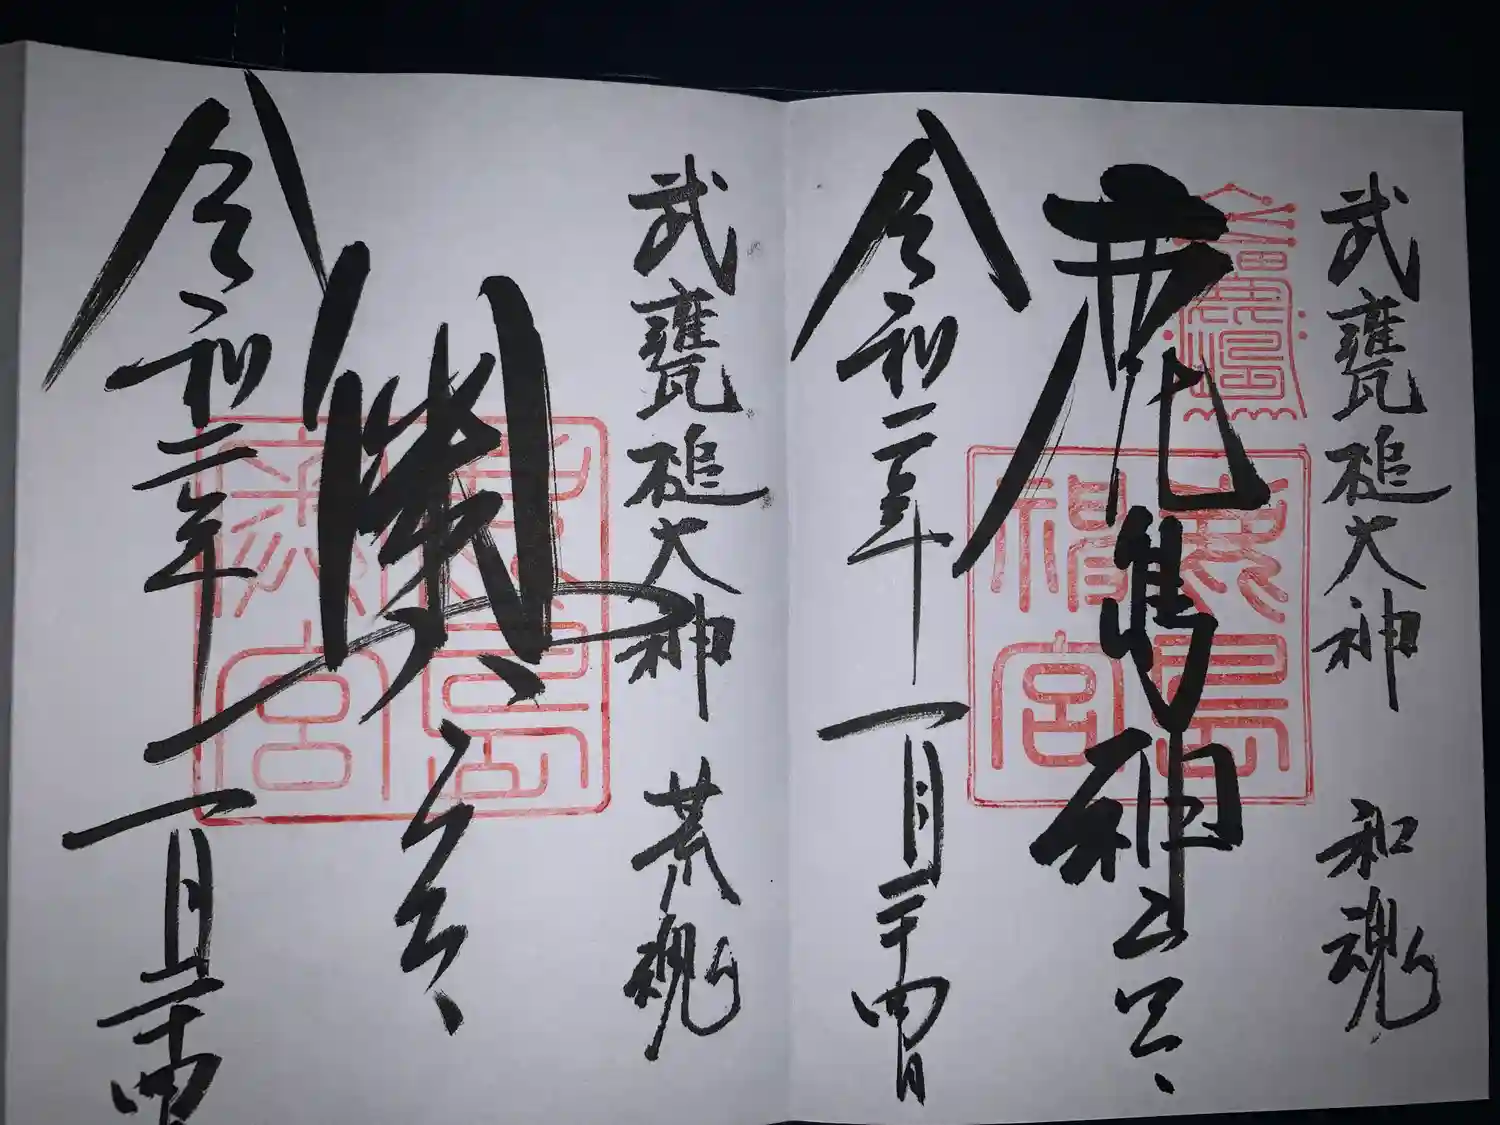 武甕槌大神 和魂
鹿島神宮
鹿島神宮
令和二年一月二十四日
武甕槌大神 荒魂
奥宮
鹿島奥宮
令和二年一月二十四